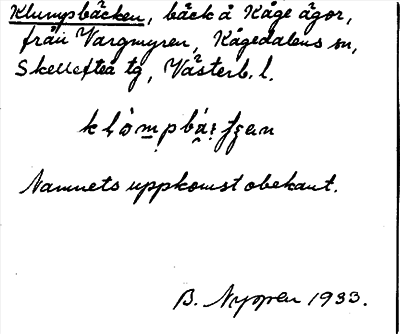 Klumpbäcken, bäck å Kåge ägor,
från Vargmyren, Kågedalens sn,
Skellefteå tg, Västerb. l.
Namnets uppkomst obekant.
B. Nyppen 1933.